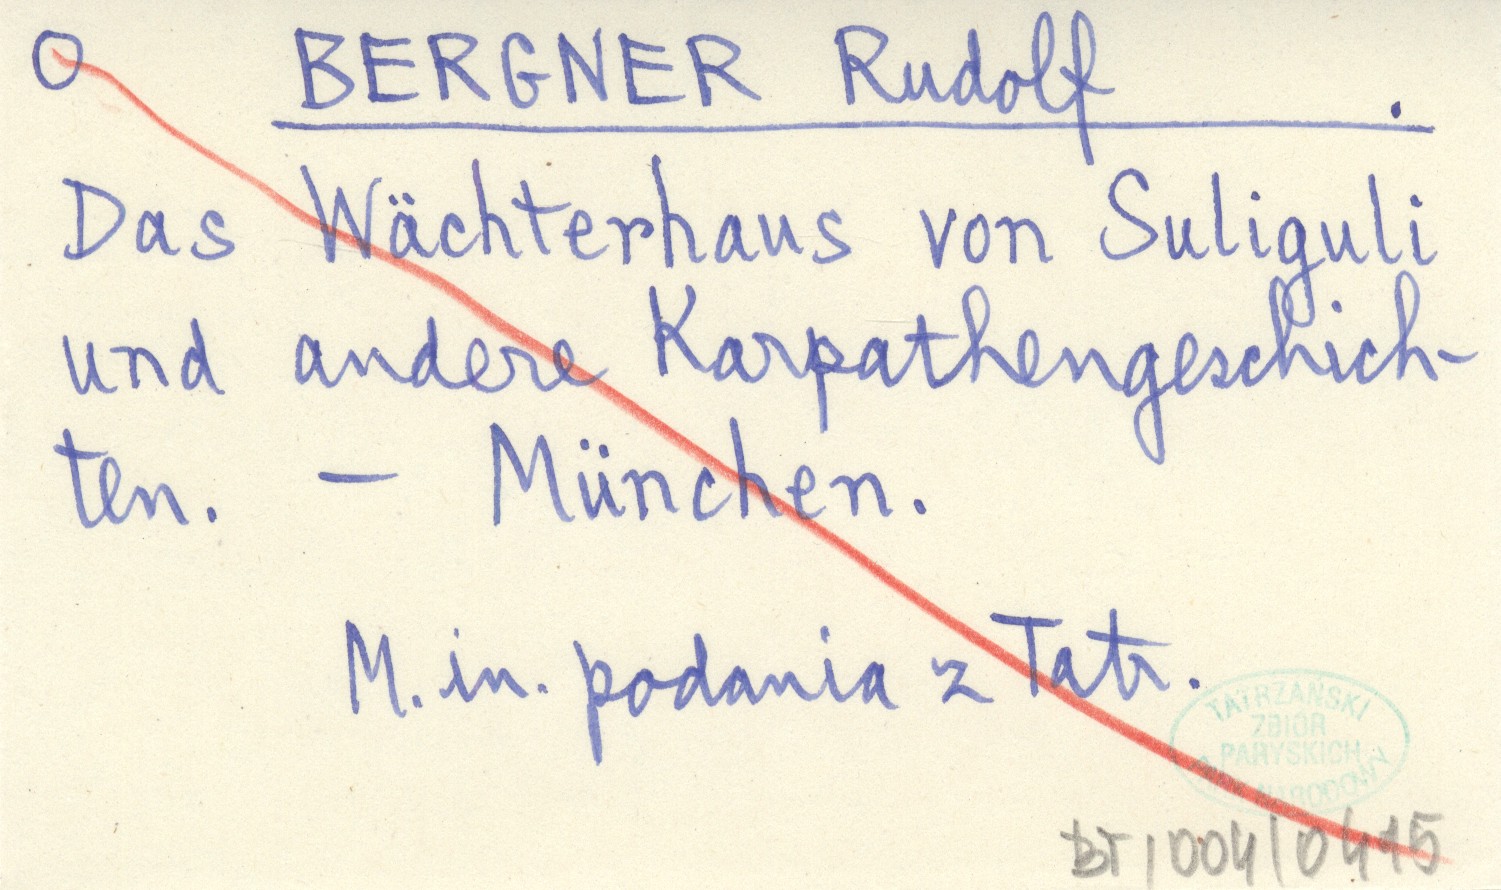 O BERGNER Rudolf .
Das Wächterhaus von Suliguli
und andere Karpathengeschich-
ten. — München.
M. in. podania z Tatr.
TATRZAŃSKI
ZBIÓR
PARYSKICH
NARODOWY
BT/004/0415